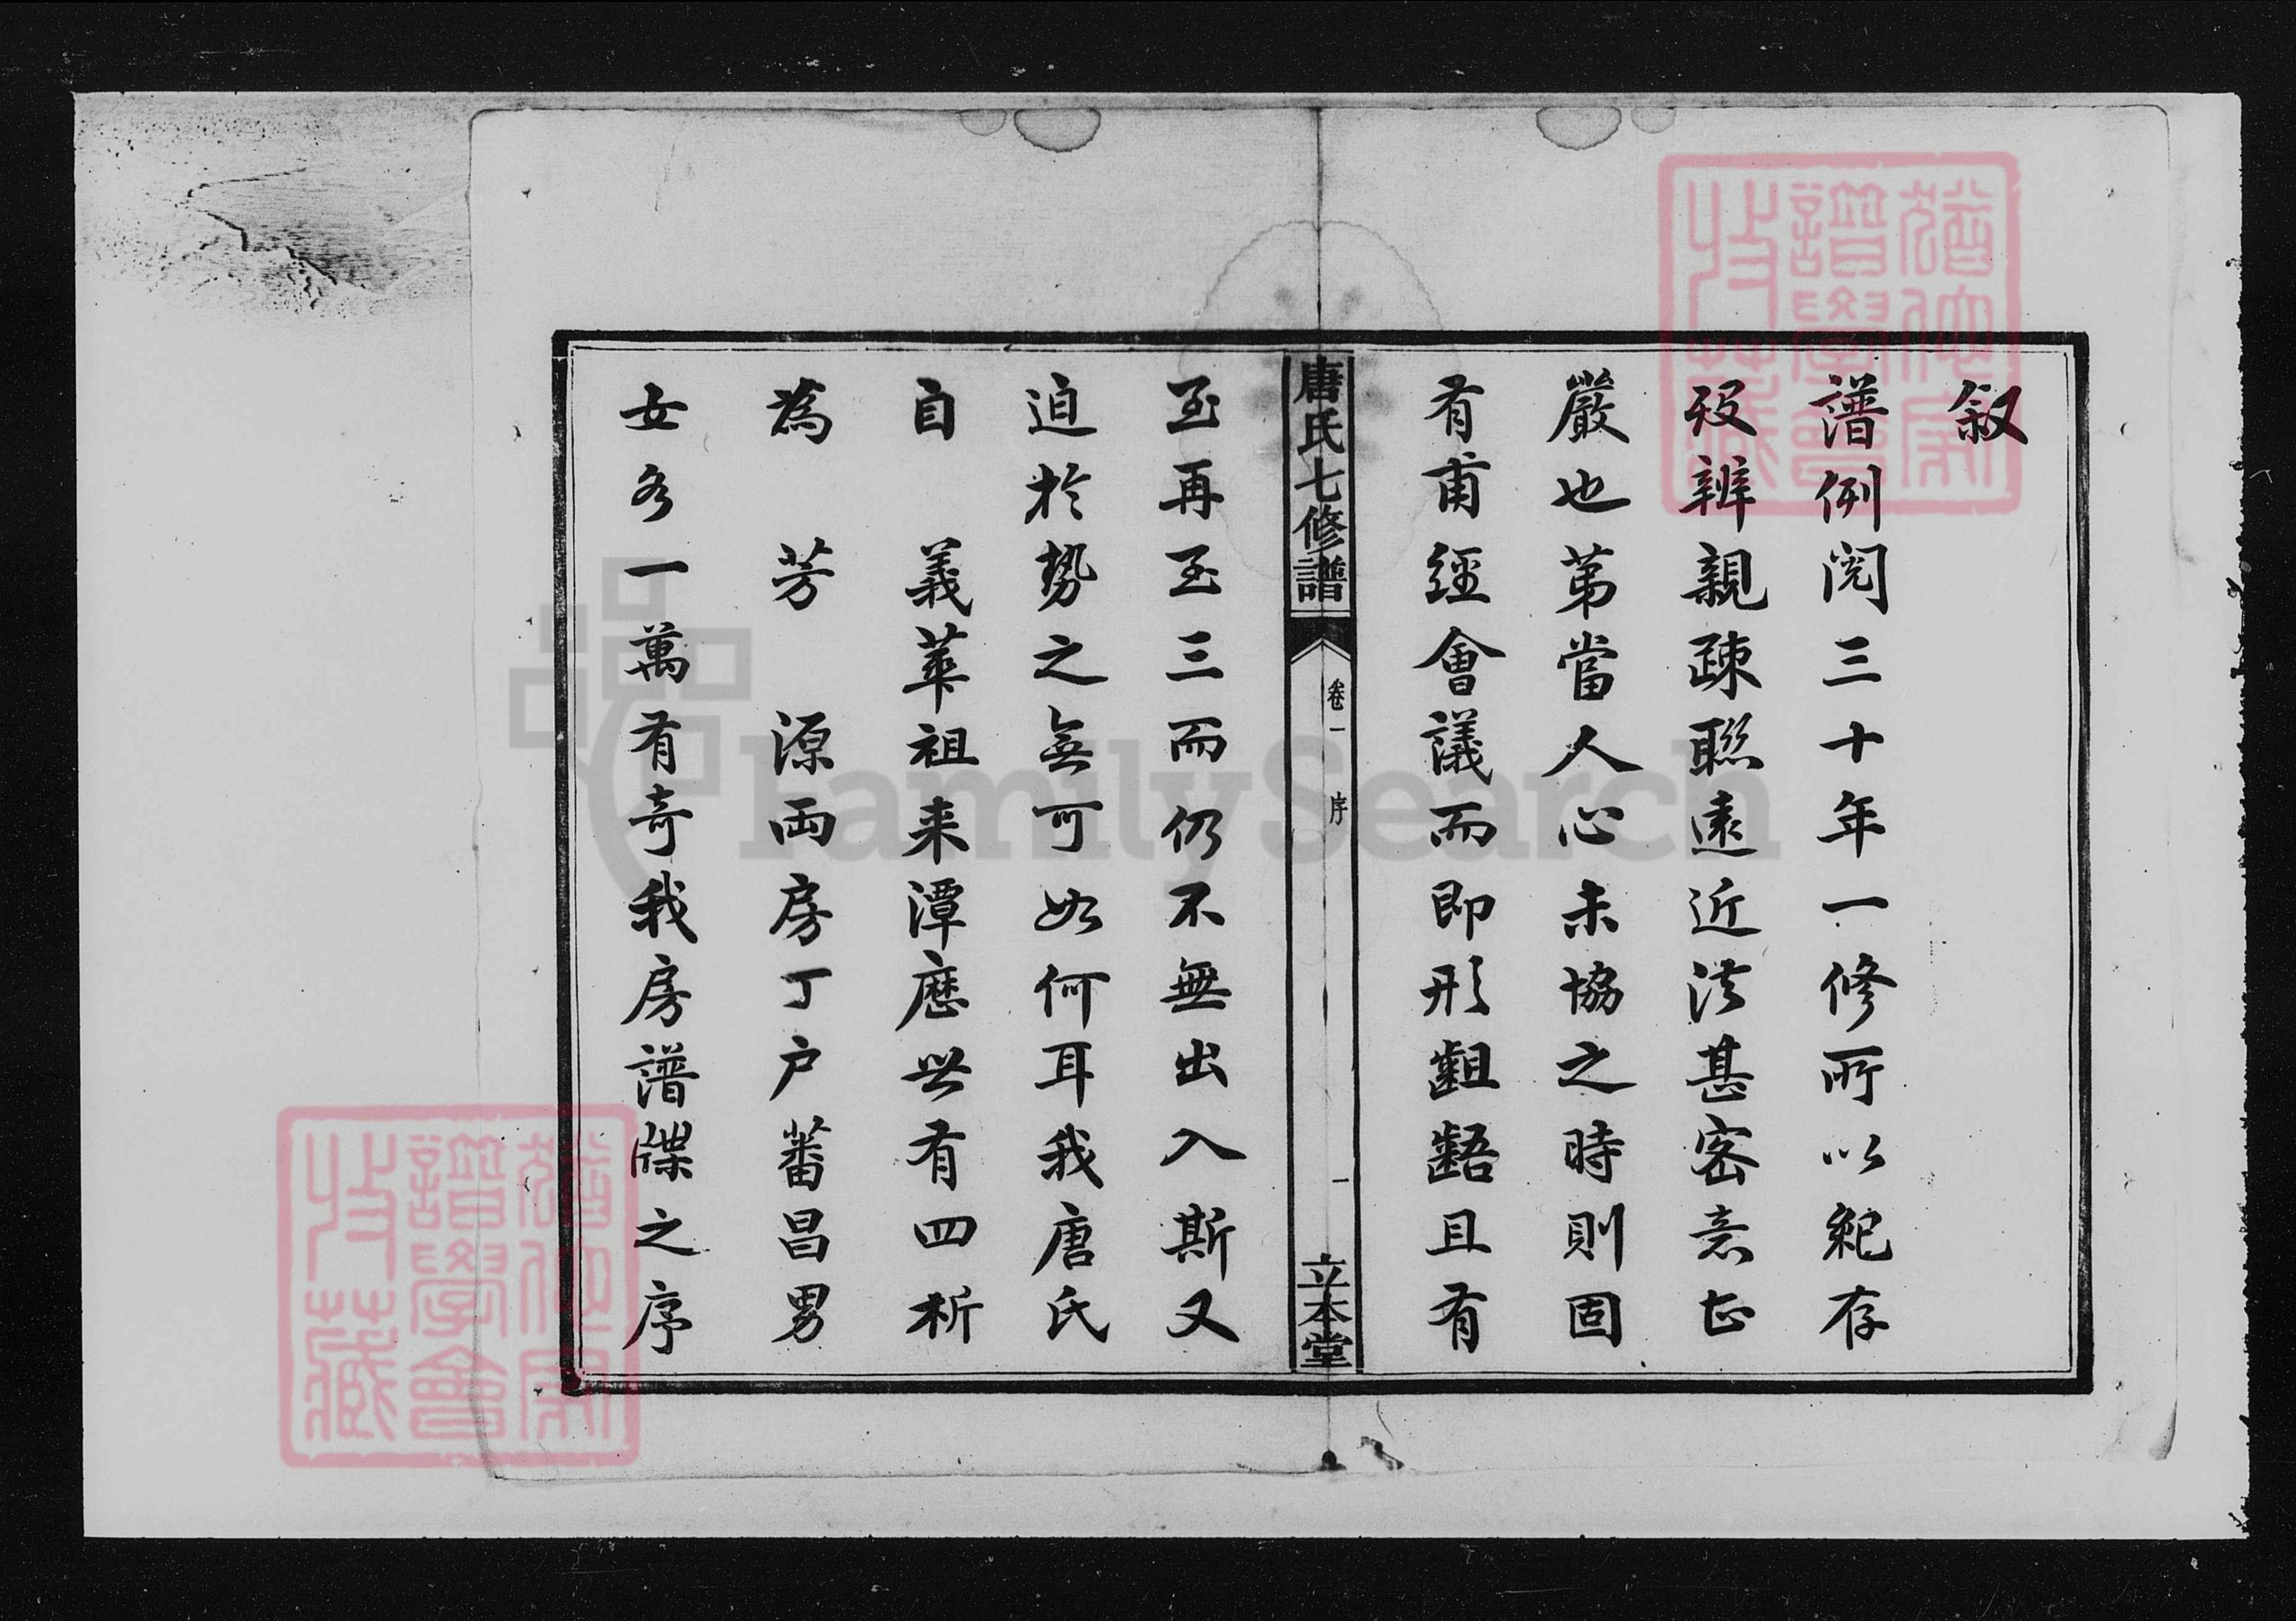 叙
譜例閱三十年一修所以紀存
歿辨親疎聯遠近法甚密意甚
嚴也第當人心未協之時則固
有甫經會議而即形齟齬且有
唐氏七修譜
卷一 序 一
立本堂
至再至三而仍不無出入斯又
迫於勢之無可如何耳我唐氏
自 義華祖来潭歷世有四析
為 芳 源両房丁户蕃昌男
女各一萬有奇我房譜牒之序
FamilySearch